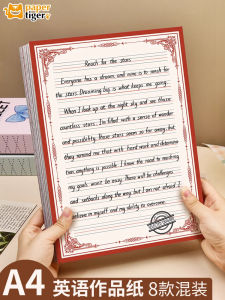 paper
tiger
Reach for the stars
Everyone has a dream, and mine is to reach for
the stars. Dreaming big is what keeps me going.
When I look up at the night sky and see those
countless stars, I'm filled with a sense of wonder
and possibility. These stars seem so far away, but
they remind me that with hard work and determina
tion, anything is possible. I know the road to reaching
my goals won't be easy. There will be challenges
and setbacks along the way, but I am not afraid. I
believe in myself and my ability to overcome.
A4 英语作品纸 8款混装